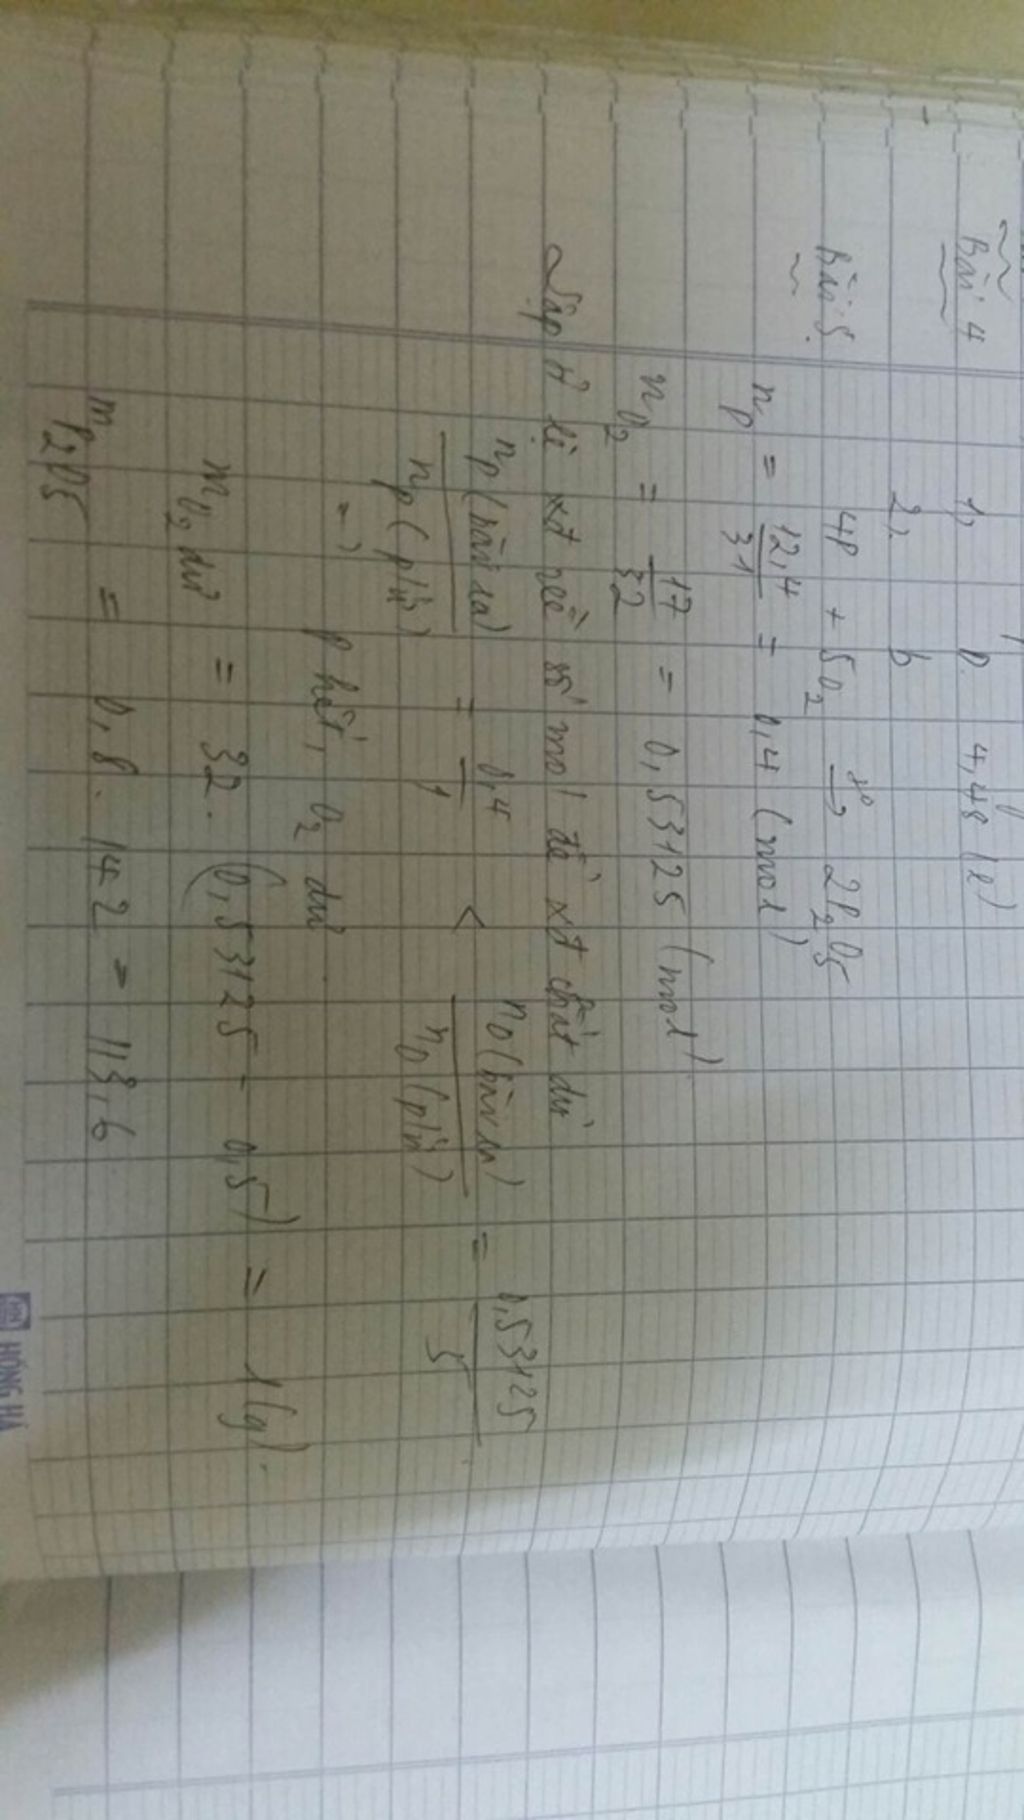 Bài 4 1, D. 4,48 (l)
2, b
Bài 5. 4P + 5O2 t° → 2P2O5
nP = 12,4 / 31 = 0,4 (mol)
nO2 = 17 / 32 = 0,53125 (mol).
Lập tỉ lệ số mol để xđ chất dư
nP (bài ra) / nP (ptư) = 0,4 / 1 < nO (bài ra) / nO (ptư) = 0,53125 / 5
=> P hết, O2 dư
mO2 dư = 32. (0,53125 - 0,5) = 1 (g).
mP2O5 = 0,8. 142 = 113,6
HH HỒNG HÀ